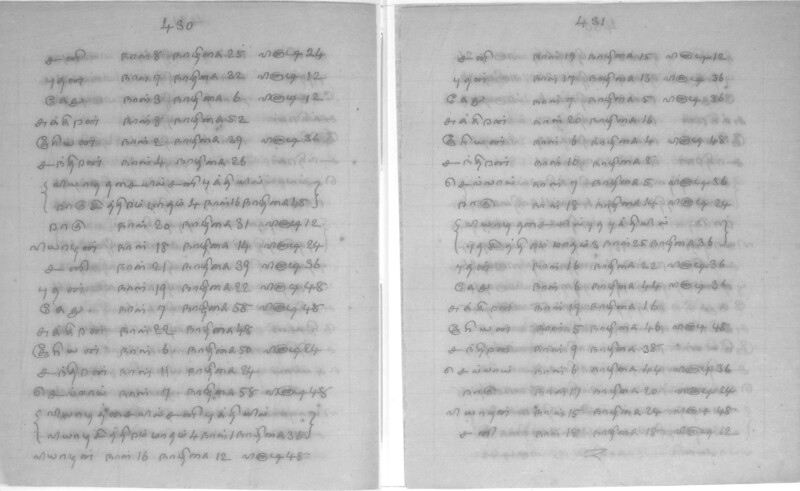 430
சனி நாள் 8 நாழிகை 25 விநாடி 24
புதன் நாள் 7 நாழிகை 32 விநாடி 12
கேது நாள் 3 நாழிகை 6 விநாடி 12
சுக்கிரன் நாள் 8 நாழிகை 52
சூரியன் நாள் 2 நாழிகை 39 விநாடி 36
சந்திரன் நாள் 4 நாழிகை 26
சனி புத்தியில்
ராகு மாதம் 4 நாள் 16 நாழிகை 48
ராகு நாள் 20 நாழிகை 31 விநாடி 12
வியாழன் நாள் 18 நாழிகை 14 விநாடி 24
சனி நாள் 21 நாழிகை 39 விநாடி 36
புதன் நாள் 19 நாழிகை 22 விநாடி 48
கேது நாள் 7 நாழிகை 58 விநாடி 48
சுக்கிரன் நாள் 22 நாழிகை 48
சூரியன் நாள் 6 நாழிகை 50 விநாடி 24
சந்திரன் நாள் 11 நாழிகை 24
செவ்வாய் நாள் 7 நாழிகை 58 விநாடி 48
சனி புத்தியில்
மாதம் 4 நாள் 1 நாழிகை 36
வியாழன் நாள் 16 நாழிகை 12 விநாடி 48
431
சனி நாள் 19 நாழிகை 15 விநாடி 12
புதன் நாள் 17 நாழிகை 13 விநாடி 36
கேது நாள் 7 நாழிகை 5 விநாடி 36
சுக்கிரன் நாள் 20 நாழிகை 16
சூரியன் நாள் 6 நாழிகை 4 விநாடி 48
சந்திரன் நாள் 10 நாழிகை 8
செவ்வாய் நாள் 7 நாழிகை 5 விநாடி 36
ராகு நாள் 18 நாழிகை 14 விநாடி 24
புத்தியில்
மாதம் 3 நாள் 25 நாழிகை 36
புதன் நாள் 16 நாழிகை 22 விநாடி 36
கேது நாள் 6 நாழிகை 44 விநாடி 36
சுக்கிரன் நாள் 19 நாழிகை 16
சூரியன் நாள் 5 நாழிகை 46 விநாடி 48
சந்திரன் நாள் 9 நாழிகை 38
செவ்வாய் நாள் 6 நாழிகை 44 விநாடி 36
ராகு நாள் 17 நாழிகை 20 விநாடி 24
வியாழன் நாள் 15 நாழிகை 24 விநாடி 48
சனி நாள் 18 நாழிகை 18 விநாடி 12